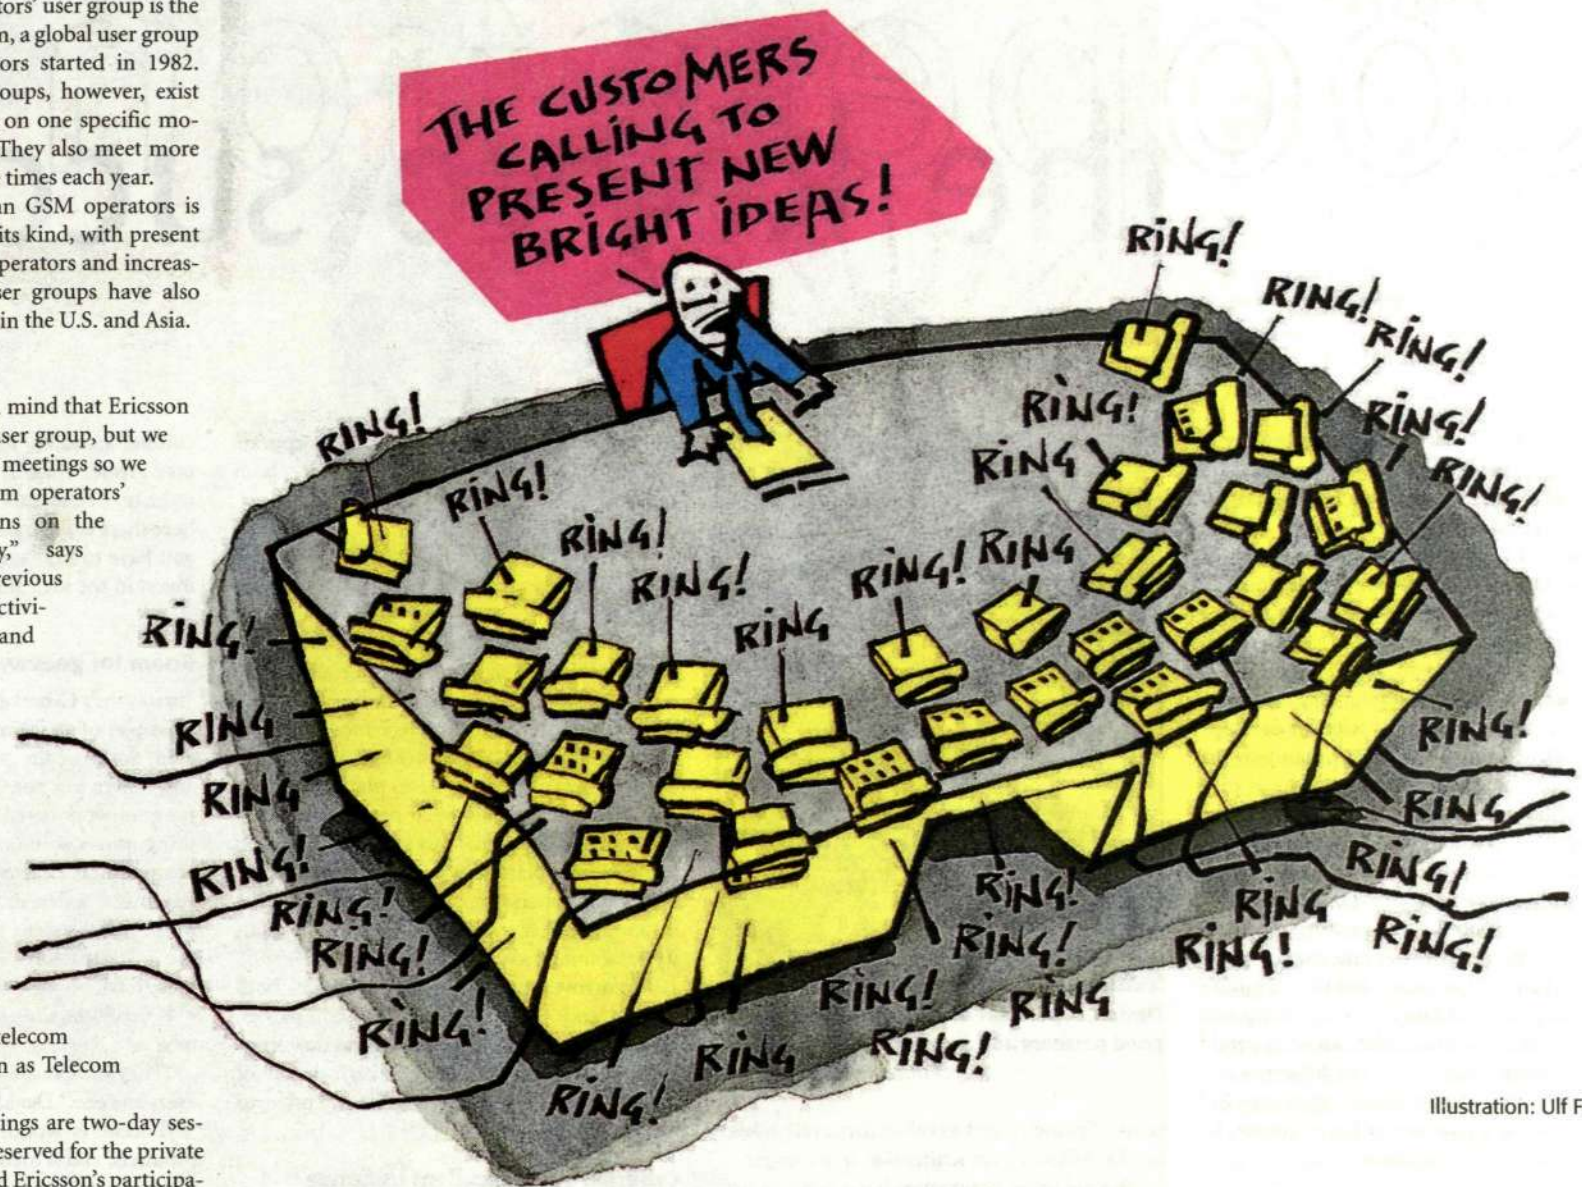 tors' user group is the
n, a global user group
ors started in 1982.
oups, however, exist
on one specific mo-
They also meet more
times each year.
an GSM operators is
its kind, with present
perators and increas-
ser groups have also
in the U.S. and Asia.
mind that Ericsson
user group, but we
meetings so we
m operators'
ns on the
y," says
revious
ctivi-
and
elecom
n as Telecom
ings are two-day ses-
eserved for the private
d Ericsson's participa-
THE CUSTOMERS
CALLING TO
PRESENT NEW
BRIGHT IDEAS!
RING!
RING!
RING!
RING!
RING!
RING!
RING
RING!
RING!
RING!
RING
RING!
RING!
RING
RING!
RING
RING!
RING
RING
RING!
RING!
RING!
RING!
RING
RING!
RING!
RING!
RING!
RING!
RING
RING!
RING!
RING
RING!
Illustration: Ulf F